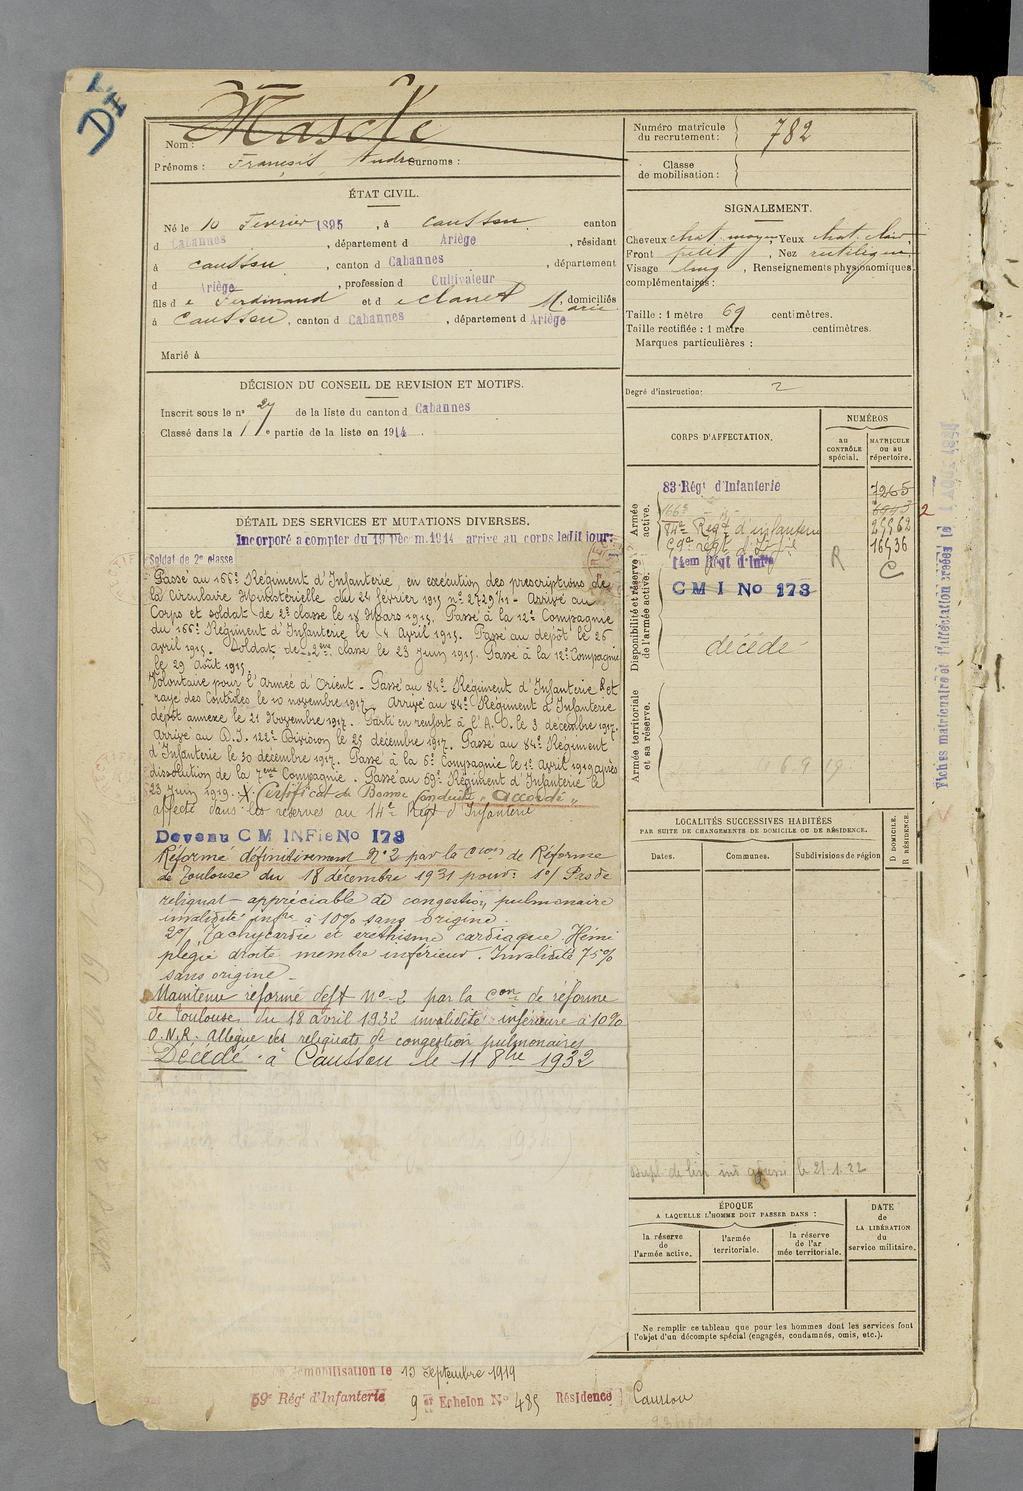 DI
Nom : Mascle
Prénoms : François André Surnoms :
Numéro matricule du recrutement : 782
Classe de mobilisation :
ÉTAT CIVIL.
Né le 10 Fevrier 1895, à Caussou, canton
d Cabannes, département d Ariège, résidant
à Caussou, canton d Cabannes, département
d Ariège, profession d Cultivateur
fils de Ferdinand et de Clanet Marie, domiciliés
à Caussou, canton d Cabannes, département d Ariège
Marié à
SIGNALEMENT.
Cheveux chat. moyen, Yeux chat. clair,
Front petit, Nez rectiligne
Visage long, Renseignements physionomiques
complémentaires :
Taille : 1 mètre 69 centimètres.
Taille rectifiée : 1 mètre centimètres.
Marques particulières :
Degré d'instruction : 2
DÉCISION DU CONSEIL DE REVISION ET MOTIFS.
Inscrit sous le n° 27 de la liste du canton d Cabannes
Classé dans la 1e partie de la liste en 1914
DÉTAIL DES SERVICES ET MUTATIONS DIVERSES.
Incorporé a compter du 19 Décem. 1914 arrive au corps ledit jour :
Soldat de 2e classe
Passé au 166e Régiment d'Infanterie, en exécution des prescriptions de
la Circulaire Ministérielle du 24 février 1915 n° 2729 1/11 - Arrivé au
Corps et soldat de 2e classe le 18 Mars 1915. Passé à la 12e Compagnie
du 166e Régiment d'Infanterie le 4 Avril 1915. Passé au dépôt le 26
avril 1915. Soldat de 2ème classe le 23 Juin 1915. Passé à la 12e Compagnie
le 29 Août 1915.
Volontaire pour l'Armée d'Orient - Passé au 84e Régiment d'Infanterie et
rayé des Contrôles le 10 novembre 1917. Arrivé au 84e Régiment d'Infanterie
dépôt annexe le 21 Novembre 1917. Parti en renfort à l'A.O. le 3 décembre 1917.
Arrivé au D.I. 122e Division le 25 décembre 1917. Passé au 84e Régiment
d'Infanterie le 30 décembre 1917. Passé à la 5e Compagnie le 1er Avril 1919 après
dissolution de la 7eme Compagnie. Passé au 59e Régiment d'Infanterie le
23 Juin 1919. Certificat de Bonne Conduite "accordé"
affecté dans les réserves au 14e Régt d'Infanterie
Devenu C M INFie No 173
Réformé définitivement N° 2 par la Con de Réforme
de Toulouse du 18 décembre 1931 pour : 1°/ Pas de
reliquat appréciable de congestion pulmonaire
invalidité infre à 10% sans origine.
2°/ Tachycardie et eréthisme cardiaque. Hémi
plegie droite membre inférieur. Invalidité 75%
sans origine -
Maintenu réformé deft n° 2 par la Con de réforme
de Toulouse du 18 avril 1932 invalidité inférieure à 10%
O.N.R. Allègue des reliquats de congestion pulmonaires
Décédé à Caussou le 11 8bre 1932
CORPS D'AFFECTATION.
NUMÉROS
au CONTRÔLE spécial.
MATRICULE ou au répertoire.
Armée active.
83 Régt d'Infanterie 7265
166e
84e Regt d'infanterie 25862
59e régt d'Inf ie 16936
Disponibilité et réserve de l'armée active.
14em Régt d'Infie R C
C M I No 173
décédé
Armée territoriale et sa réserve.
6.9.19.
LOCALITÉS SUCCESSIVES HABITÉES
PAR SUITE DE CHANGEMENTS DE DOMICILE OU DE RÉSIDENCE.
Dates. Communes. Subdivisions de région
D DOMICILE.
R RÉSIDENCE.
le 21.1.22
ÉPOQUE
A LAQUELLE L'HOMME DOIT PASSER DANS :
la réserve de l'armée active.
l'armée territoriale.
la réserve de l'armée territoriale.
DATE de LA LIBÉRATION du service militaire.
Ne remplir ce tableau que pour les hommes dont les services font
l'objet d'un décompte spécial (engagés, condamnés, omis, etc.).
démobilisation le 15 Septembre 1919
59e Régt d'Infanterie 9 er Echelon No 485 Résidence Caussou